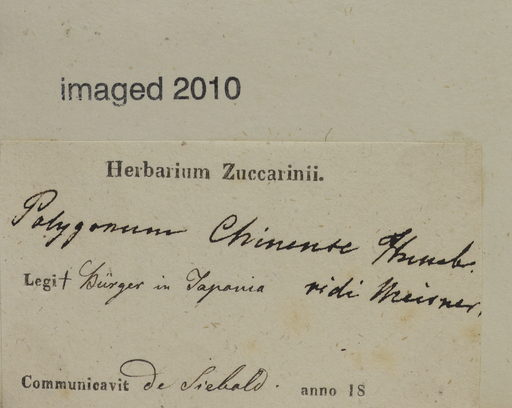 imaged 2010
Herbarium Zuccarinii.
Polygonum Chinense
Legit Bürger in Japonia vidi Meisner.
Communicavit de Siebold. anno 18